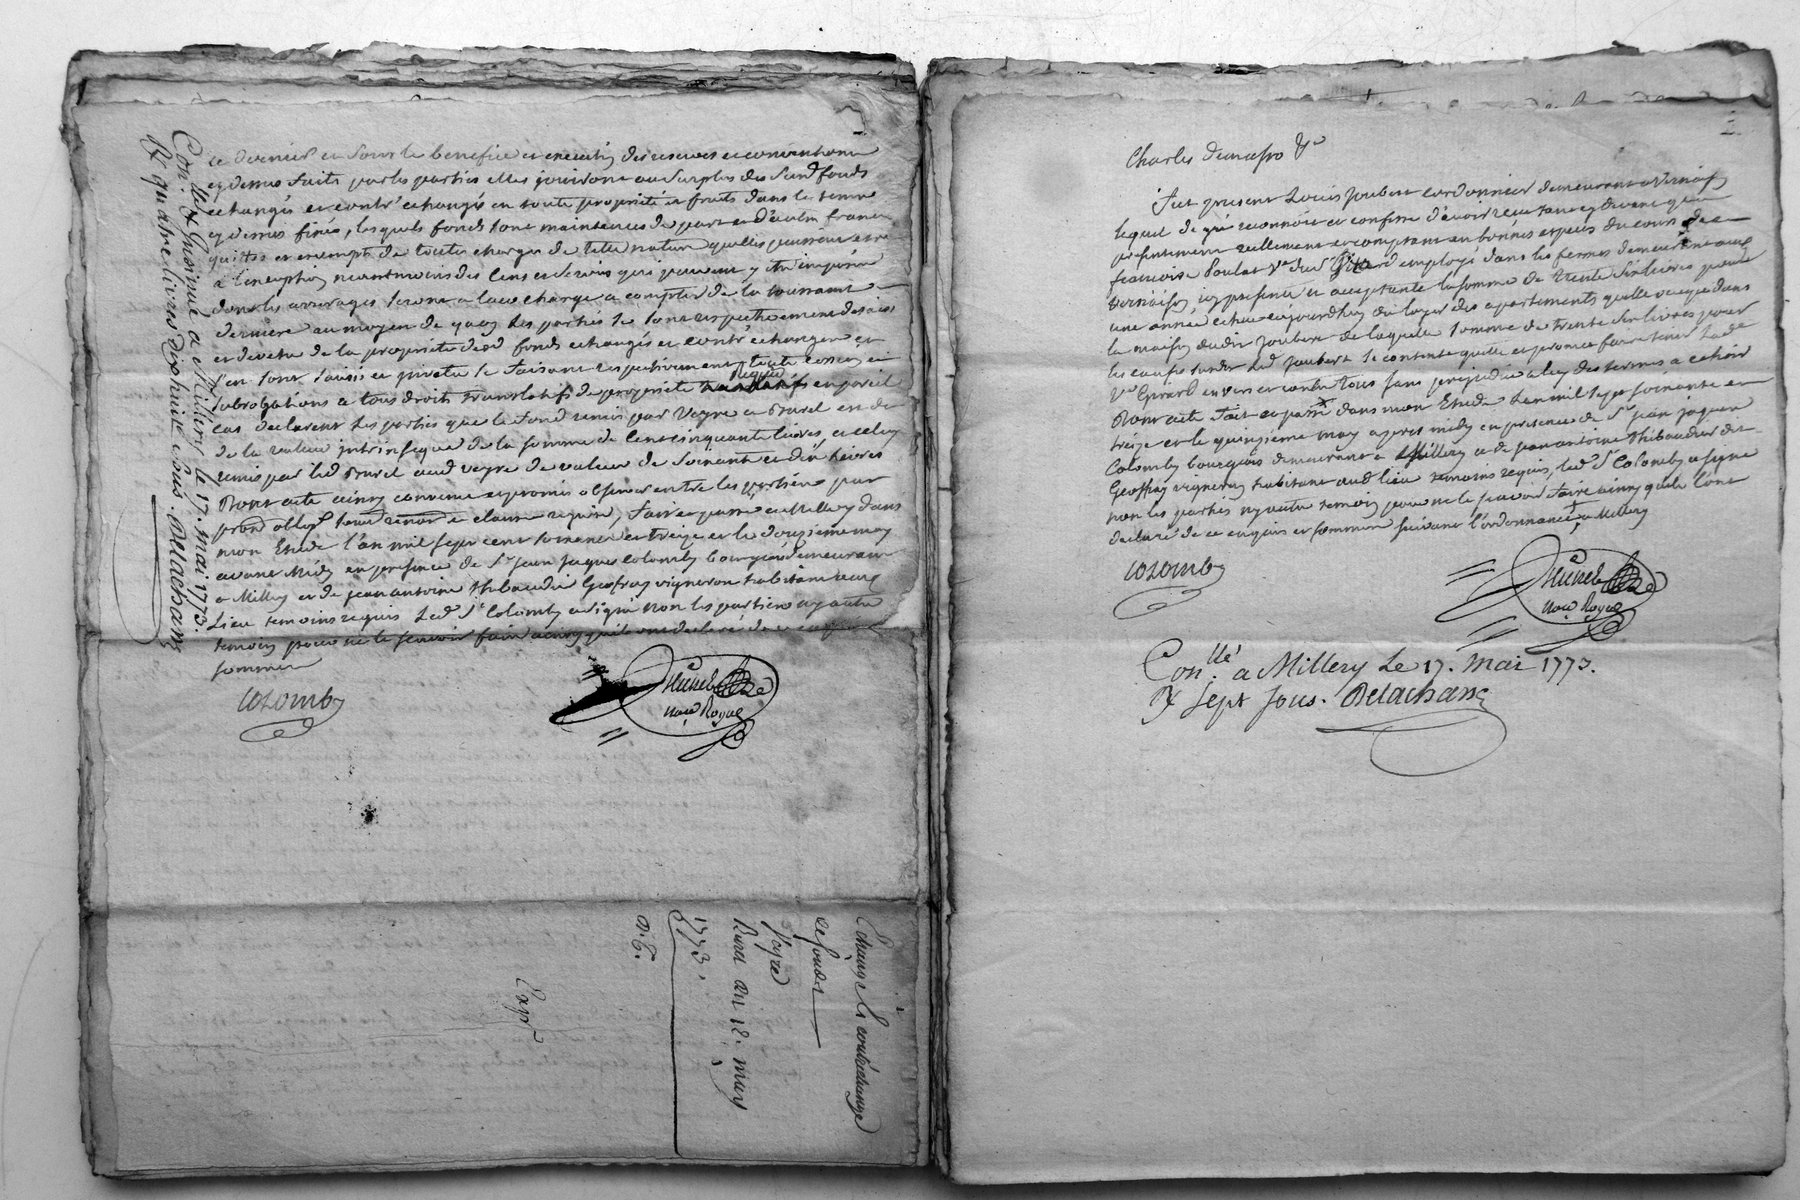 ce dernier et sous le benefice et execution des reserves et conventions
cydessus faits par les parties elles jouiront au surplus des susd fonds
echangés et contr'echangés en toute propriété et fruits dans le terme
cydessus fixés, lesquels fonds sont maintenus de part et d'autre francs
quittes et exempts de toutes charges de telle nature quelles puissent etre
à l'exception neantmoins des cens et servis qui peuvent y etre imposés
dont les arrerages seront a leur charge a compter de la toussaint
derniere au moyen de quoy les parties se sont respectivement
et devetu de la propriété desd fonds echangés et contr'echangés et
s'en sont saisis et investis se faisant respectivement toute
subrogations a tous droits translatifs de propriété en pareil
cas declarent les parties que le fond remis par Veyre a Burel est de
de la valeur intrinseque de la somme de cent cinquante livres, et celuy
remis par led Burel aud Veyre de valeur de soixante et dix livres
Dont acte ainsy convenu et promis observer entre les parties par
clause requise, fait et passé a Millery dans
mon Etude l'an mil sept cent soixante et treize et le douzieme may
avant midy en presence de Sr jean jaques Colomby bourgeois demeurant
a Millery et de jean antoine thibaudier Geofray vigneron habitant aud
lieu temoins requis Led Sr Colomby a signé non les parties ny autre
temoin pour ne le scavoir faire ainsy quils ont declaré de ce enquis
sommés
Colomby
Notre Royal
Conllé & Insinué a Millery le 17. mai 1773.
Rx quatre livres dixhuit sous. Delachans
Echange & contr'echange
de fonds
Veyre
Burel du 12. may
1773.
Exp
Charles
Fut present Louis Joubert cordonnier demeurant a Vernaison
lequel de gré reconnoit et confesse d'avoir recu tant cy devant que
presentement reellement et comptant en bonnes especes du cours de
francoise Poulat Ve du Sr Girard employé dans les fermes demeurante aud
Vernaison icy presente et acceptante la somme de trente six livres pour
une année echue aujourdhuy du loyer des apartements quelle occupe dans
la maison dudit Joubert de laquelle somme de trente six livres pour
les causes susd led Joubert se contente quitte et promet faire tenir lad
Ve Girard envers et contre tous sans prejudice a luy des termes a echoir
Dont acte fait et passé dans mon Etude l'an mil sept soixante et
treize et le quinzieme may apres midy en presence de Sr jean jaques
Colomby bourgeois demeurant a Millery et de jean antoine thibaudier
Geoffray vigneron habitant aud lieu temoins requis, led Sr Colomby a signé
non les parties ny autre temoin pour ne le scavoir faire ainsy quils l'ont
declaré de ce enquis et sommés suivant l'ordonnance, a Millery
Colomby
Notre Royal
Conllé a Millery Le 17. mai 1773.
Rx sept sous. Delachans